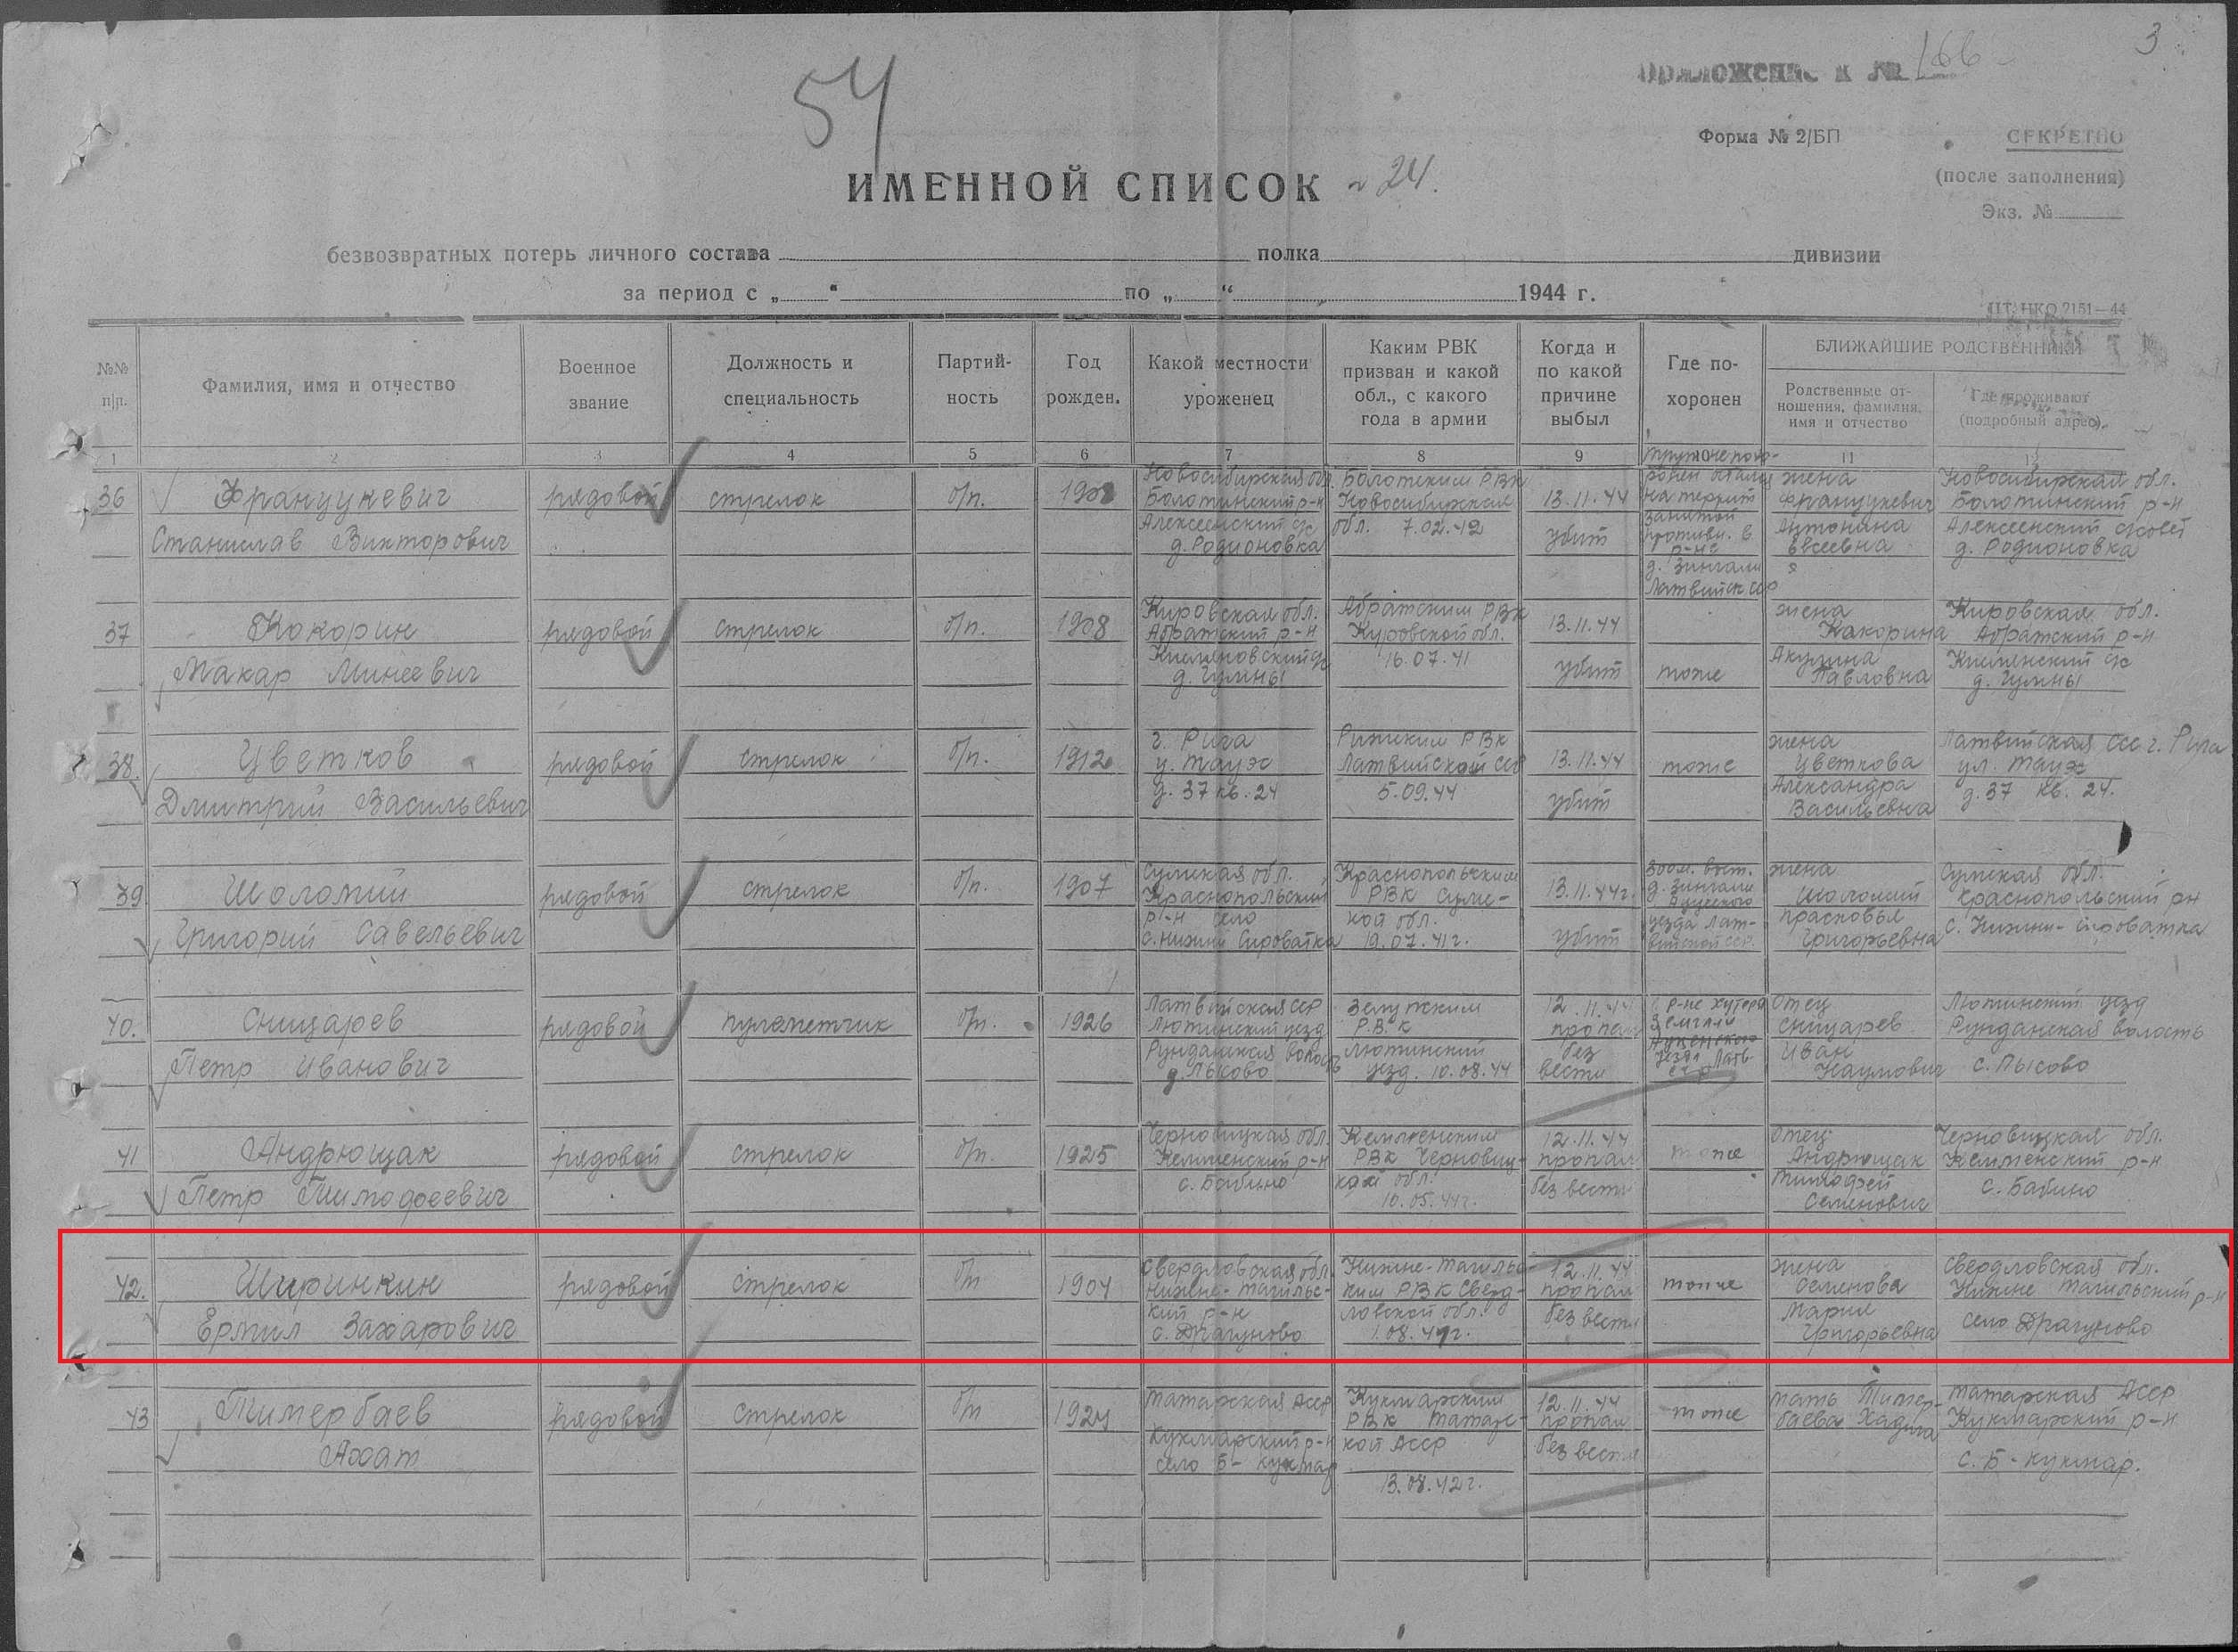 3
54
Приложение к № 166
Форма № 2/БП
СЕКРЕТНО
(после заполнения)
Экз. №
ИМЕННОЙ СПИСОК N 24.
безвозвратных потерь личного состава полка дивизии
за период с „ “ по „ “ 1944 г.
№№ п/п.
Фамилия, имя и отчество
Военное звание
Должность и специальность
Партийность
Год рожден.
Какой местности уроженец
Каким РВК призван и какой обл., с какого года в армии
Когда и по какой причине выбыл
Где похоронен
БЛИЖАЙШИЕ РОДСТВЕННИКИ
Родственные отношения, фамилия, имя и отчество
Где проживают (подробный адрес)
1 2 3 4 5 6 7 8 9 11
36 Францукевич рядовой стрелок б/п. 1908 Новосибирская обл. Болотинский р-н Болотским РВК Новосибирская 13.11.44 жена Францукевич Новосибирская обл. Болотинский р-н
Станислав Викторович Алексеевский с/с д. Родионовка обл. 7.02.42 убит Антонина Евсеевна Алексеевский с/совет д. Родионовка
д. Зингали Латвийск ССР
37 Кокорин рядовой стрелок б/п. 1908 Кировская обл. р-н РВК 13.11.44 жена Какорина Кировская обл. р-н
Макар Минеевич 16.07.41 убит тоже Акулина Павловна
38. Цветков рядовой стрелок б/п. 1912 г. Рига Рижским РВК Латвийской ССР 13.11.44 тоже жена Цветкова Латвийская ССР г. Рига
Дмитрий Васильевич д. 37 кв. 24 5.09.44 убит Александра Васильевна д. 37 кв. 24.
39 Шоломий рядовой стрелок б/п. 1907 Сумская обл. Краснопольский Краснопольским РВК Сумс- 13.11.44г. д. Зингали жена Шоломий Сумская обл. Краснопольский рн
Григорий Савельевич р-н село с. Нижний Сироватка кой обл. 19.07.41г. убит уезда Латвийской ССР. Прасковья Григорьевна с. Нижни-Сироватка
40. Сницарев рядовой пулеметчик б/п. 1926 Латвийская ССР Лютинский уезд РВК 12.11.44 пропал отец Сницарев Лютинский уезд Рунданская волость
Петр Иванович Рунданская волость д. Лысово Лютинский уезд. 10.08.44 без вести Иван Наумович с. Лысово
41 Андрющак рядовой стрелок б/п. 1925 Черновицкая обл. Кельменский р-н Кельменским РВК Черновиц- 12.11.44 пропал тоже отец Андрющак Черновицкая обл. Кельменский р-н
Петр Тимофеевич с. Бабино кой обл. 10.05.44г. без вести Тимофей Семенович с. Бабино
42. Ширинкин рядовой стрелок б/п 1904 Свердловская обл. Нижне-Тагильс- Нижне-Тагильс- ким РВК Сверд- 12.11.44 пропал тоже жена Семенова Свердловская обл. Нижне Тагильский р-н
Ермил Захарович кий р-н с. Драгуново ловской обл. 1.08.41г. без вести Мария Григорьевна село Драгуново
43 Тимербаев рядовой стрелок б/п 1924 Татарская АССР Кукмарским РВК Татарс- 12.11.44 пропал тоже мать Тимер- баева Хадича Татарская АССР Кукмарский р-н
Ахат Кукмарский р-н село Б-Кукмар кой АССР 13.08.42г. без вести с. Б-Кукмар.